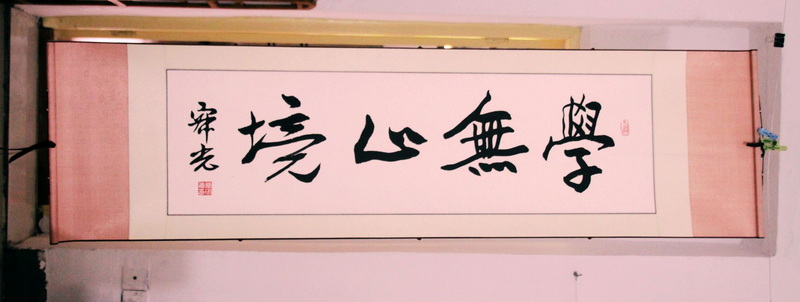 學無止境
舜光